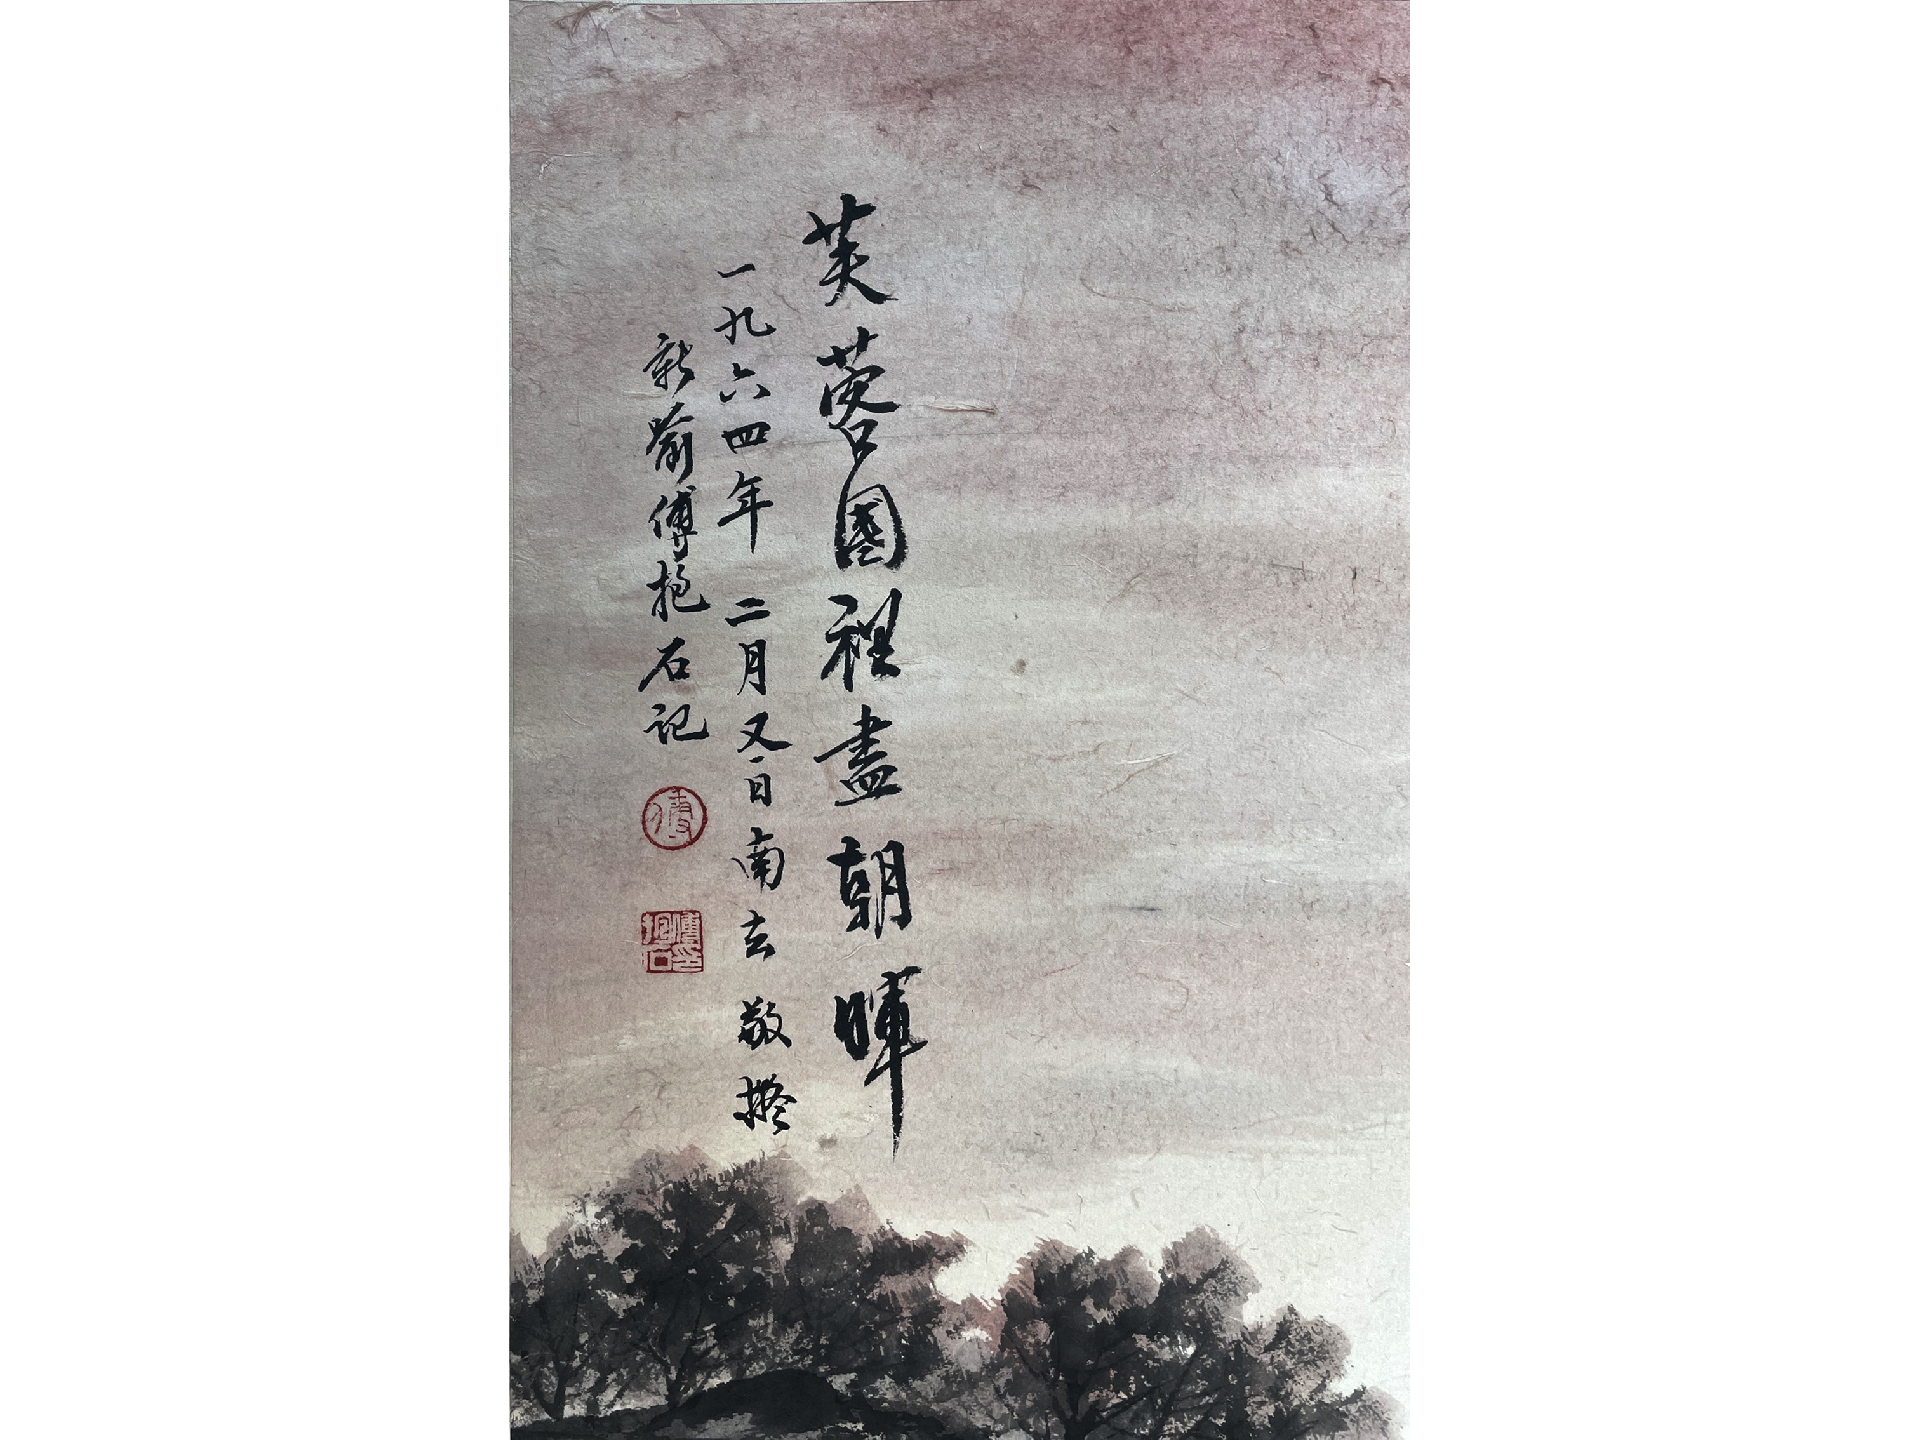 芙蓉國裡盡朝暉
一九六四年二月又一日南京敬擬
新喻傅抱石記
傅
傅抱石印